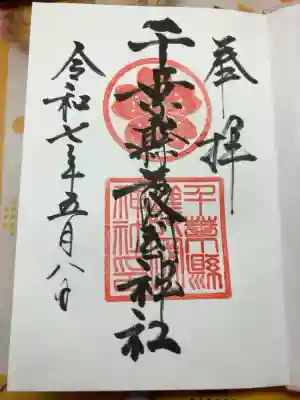 奉拝
千葉縣護國神社
令和七年五月八日
千葉縣
護國
神社印